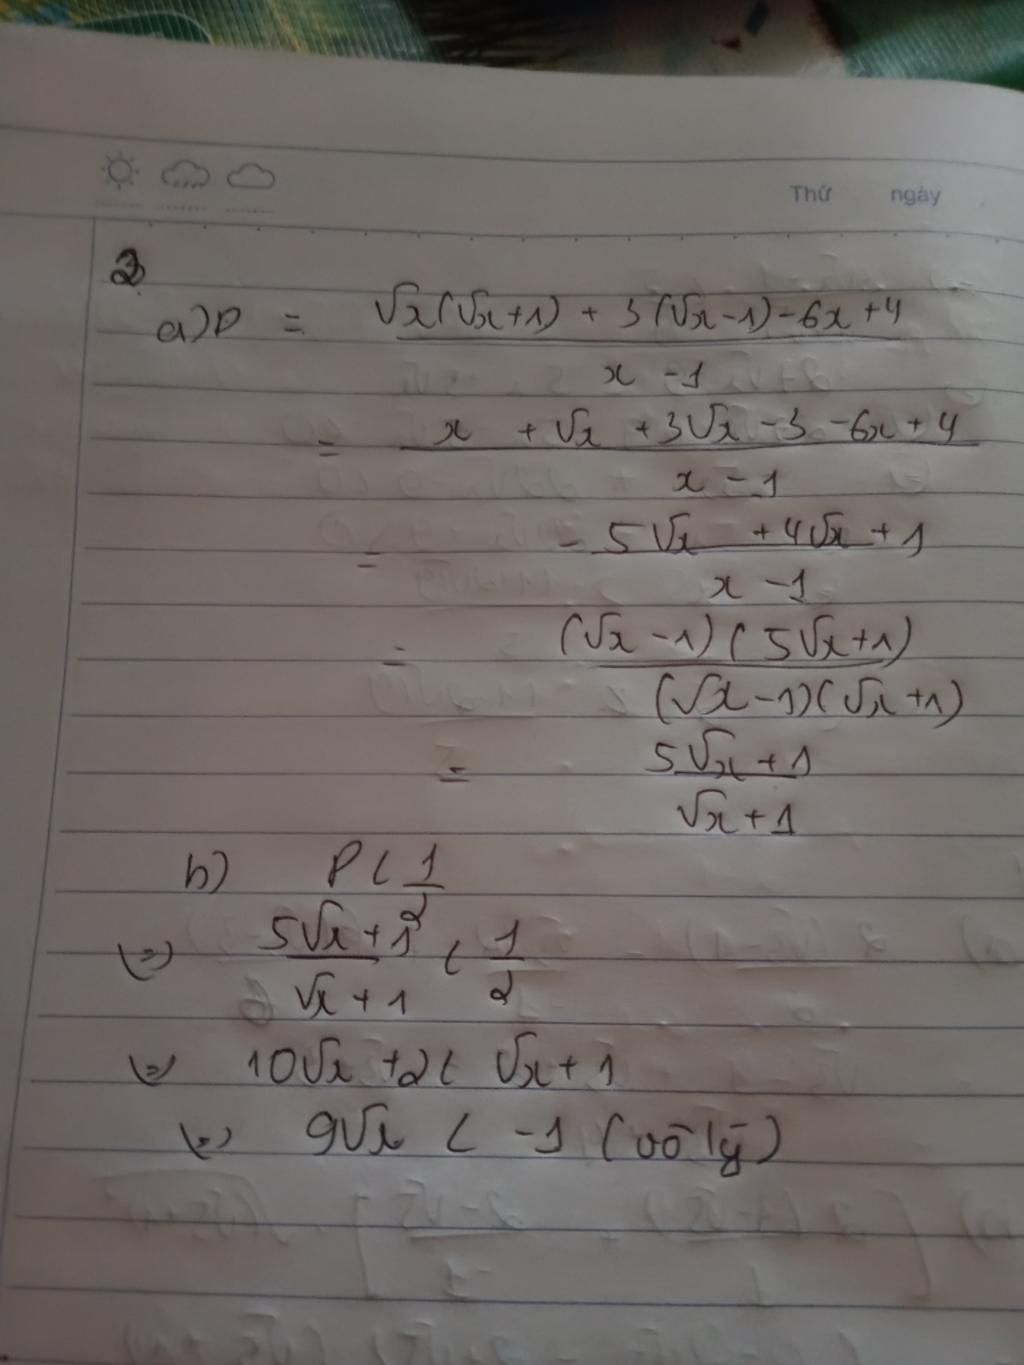 Thứ ngày
2
a) P = (√x(√x+1) + 3(√x-1) - 6x + 4) / (x - 1)
= (x + √x + 3√x - 3 - 6x + 4) / (x - 1)
= (-5√x + 4√x + 1) / (x - 1)
= ((√x - 1)(5√x + 1)) / ((√x - 1)(√x + 1))
= (5√x + 1) / (√x + 1)
b) P < 1/2
(=) (5√x + 1) / (√x + 1) < 1/2
(=) 10√x + 2 < √x + 1
(=) 9√x < -1 (vô lý)